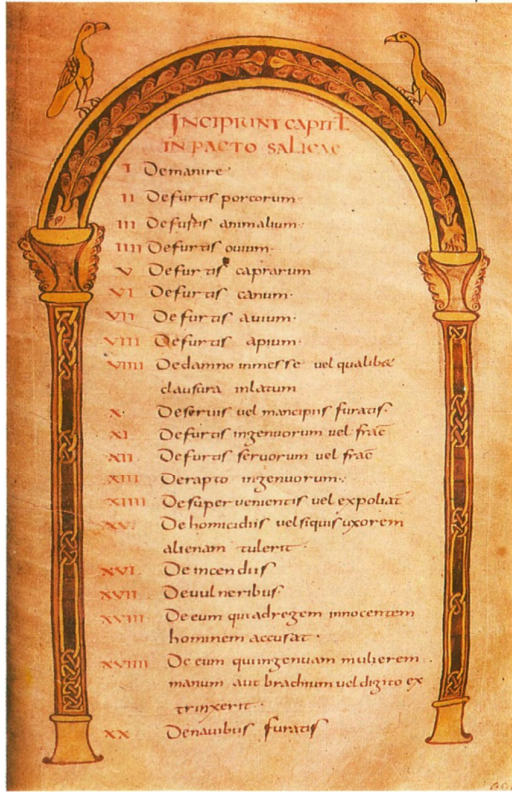 INCIPIUNT CAPITL
IN PACTO SALICAE
I Demanire
II Defurtis porcorum
III Defurtis animalium
IIII Defurtis ovium
V Defurtis caprarum
VI Defurtis canum
VII Defurtis avium
VIII Defurtis apium
VIIII Dedamno inmesse vel qualibet
clausura inlatum
X Deservis vel mancipiis furatis
XI Defurtis ingenuorum vel frac
XII Defurtis servorum vel frac
XIII Derapto ingenuorum
XIIII Desuper venientis vel expoliat
XV De homicidiis vel siquis uxorem
alienam tulerit
XVI De incendiis
XVII Devulneribus
XVIII De eum qui adregem innocentem
hominem accusat
XVIIII De eum qui ingenuam mulierem
manum aut brachium vel digito ex
trinxerit
XX Denavibus furatis